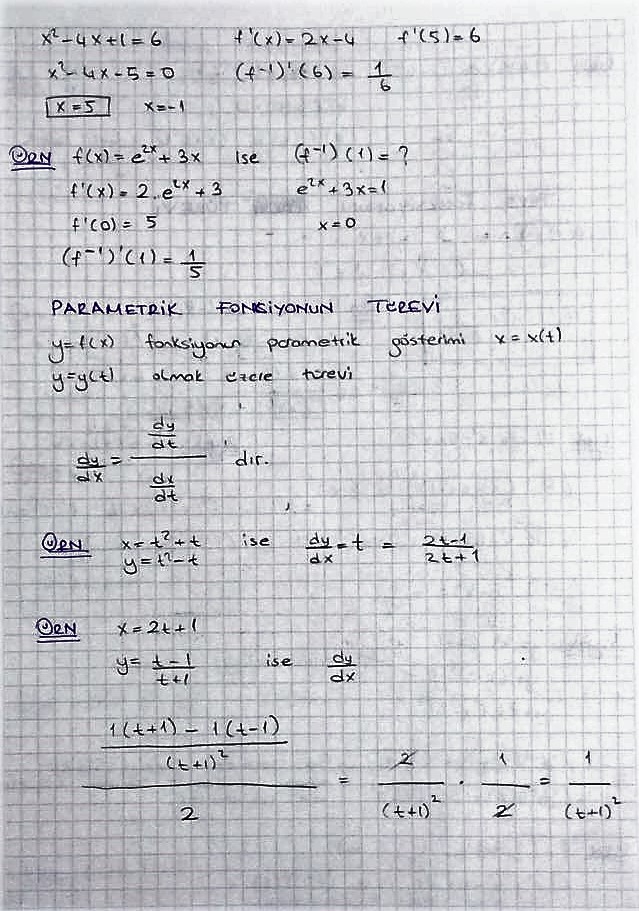 x² - 4x + 1 = 6    f'(x) = 2x - 4    f'(5) = 6
x² - 4x - 5 = 0    (f⁻¹)'(6) = 1/6
x = 5    x = -1
ÖRN f(x) = e^(2x) + 3x ise (f⁻¹)(1) = ?
f'(x) = 2.e^(2x) + 3    e^(2x) + 3x = 1
f'(0) = 5    x = 0
(f⁻¹)'(1) = 1/5
PARAMETRİK FONKSİYONUN TÜREVİ
y = f(x) fonksiyonun parametrik gösterimi x = x(t)
y = y(t) olmak üzere türevi
dy/dx = (dy/dt)/(dx/dt) dır.
ÖRN x = t² + t ise dy/dx = t = (2t-1)/(2t+1)
y = t² - t
ÖRN x = 2t + 1
y = (t-1)/(t+1) ise dy/dx
((1(t+1) - 1(t-1))/(t+1)²)/2 = 2/(t+1)² . 1/2 = 1/(t+1)²